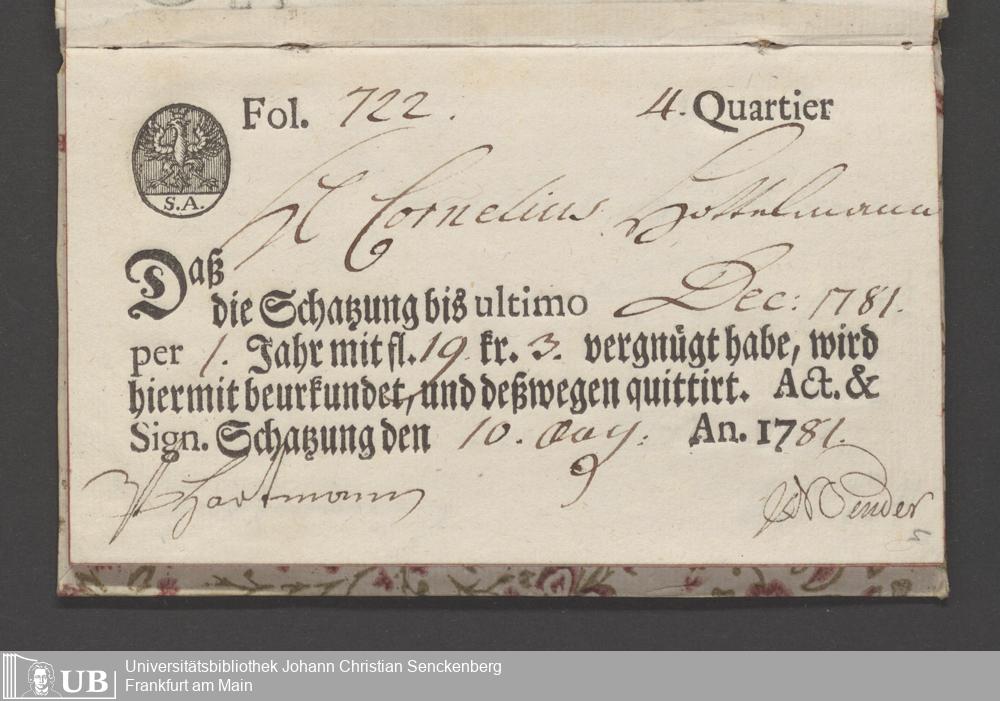 Fol. 722. 4. Quartier
S.A.
H Cornelius Hottelmann
Daß
die Schatzung bis ultimo Dec: 1781.
per 1. Jahr mit fl. 19 kr. 3. vergnügt habe, wird
hiermit beurkundet, und deßwegen quittirt. Act. &
Sign. Schatzung den 10. An. 1781.
Hartmann
Wender
UB
Universitätsbibliothek Johann Christian Senckenberg
Frankfurt am Main